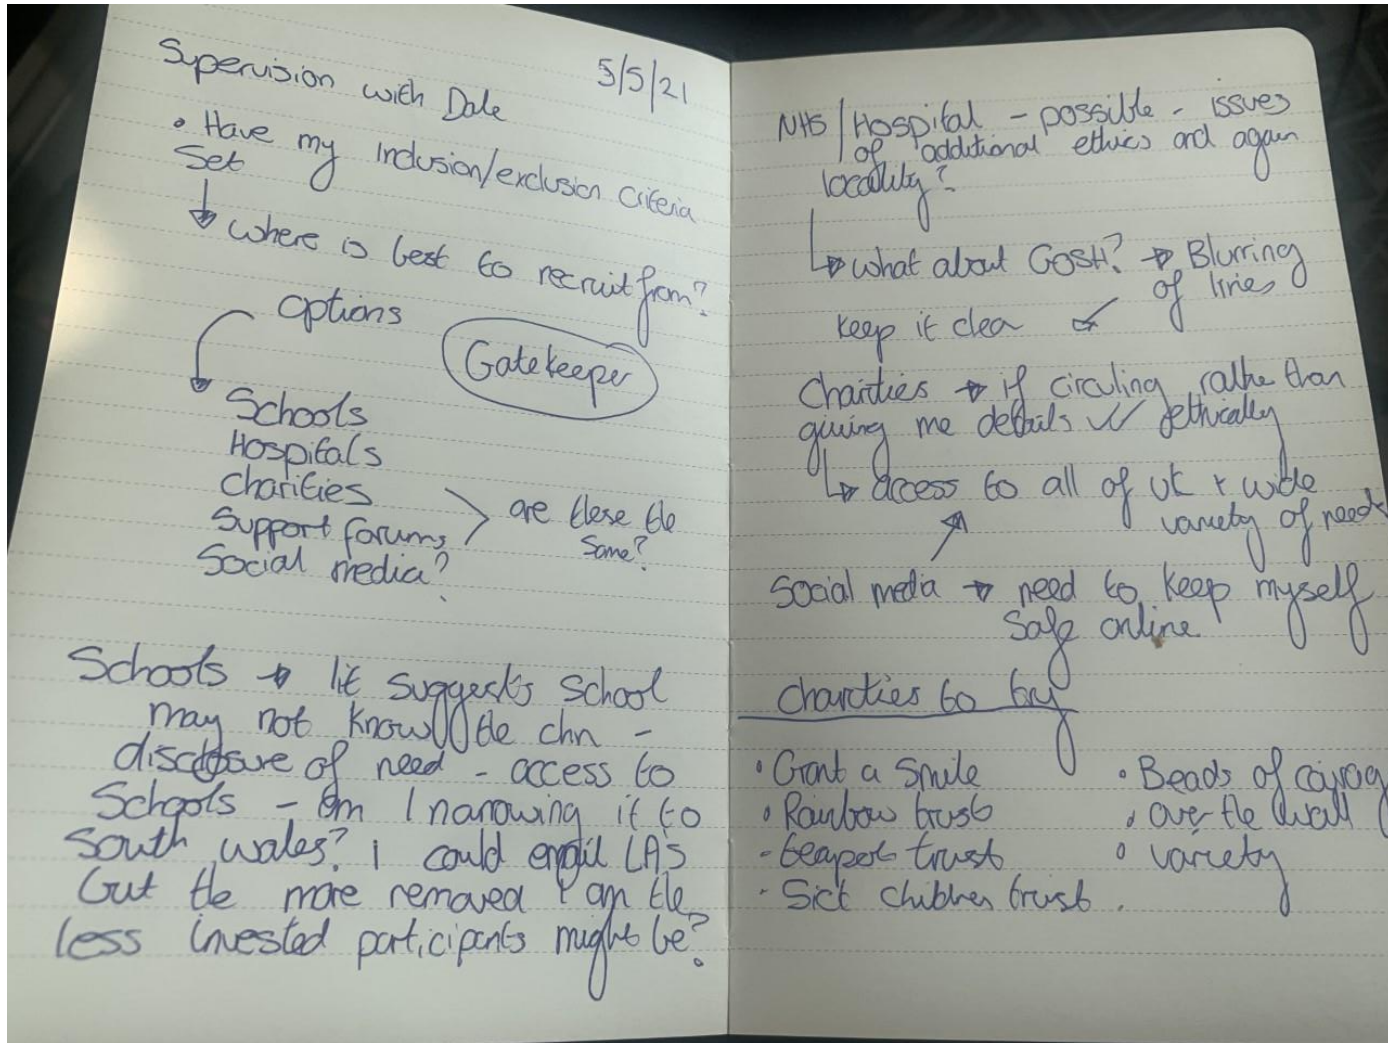 Supervision with Dale
5/5/21
• Have my inclusion/exclusion criteria
set
where is best to recruit from?
options
Gatekeeper
Schools
Hospitals
Charities
Support forums
Social media?
are these the
same?
Schools → lit suggests school
may not know the chn -
disclosure of need - access to
Schools - am I narrowing it to
South wales? i could email LAS
but the more removed I am the
less invested participants might be?
NHS / Hospital - possible - issues
of additional ethics and again
locality?
→ what about GOSH? → Blurring
of lines
keep it clea
Charities → if circuling rathe than
giving me details ✓✓ ethically
→ access to all of uk + wide
variety of needs
Social media → need to keep myself
safe online
charities to try
• Grant a Smile
• Rainbow trust
- teapot trust
- Sick children trust
• Beads of courag
• over the wall
• variety